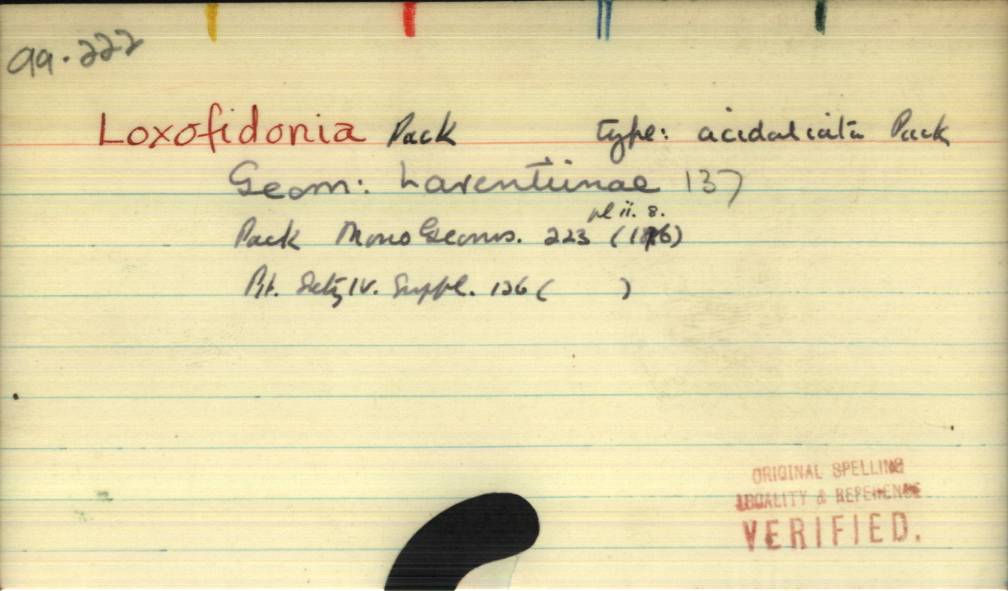 99.222
Loxofidonia Pack type: acidaliata Pack
Geom: Larentiinae 137
pl ii. 8.
Pack Mono Geoms. 223 (1876)
Pt. Seitz IV. Suppl. 126 ( )
ORIGINAL SPELLING
LOCALITY & REFERENCE
VERIFIED.